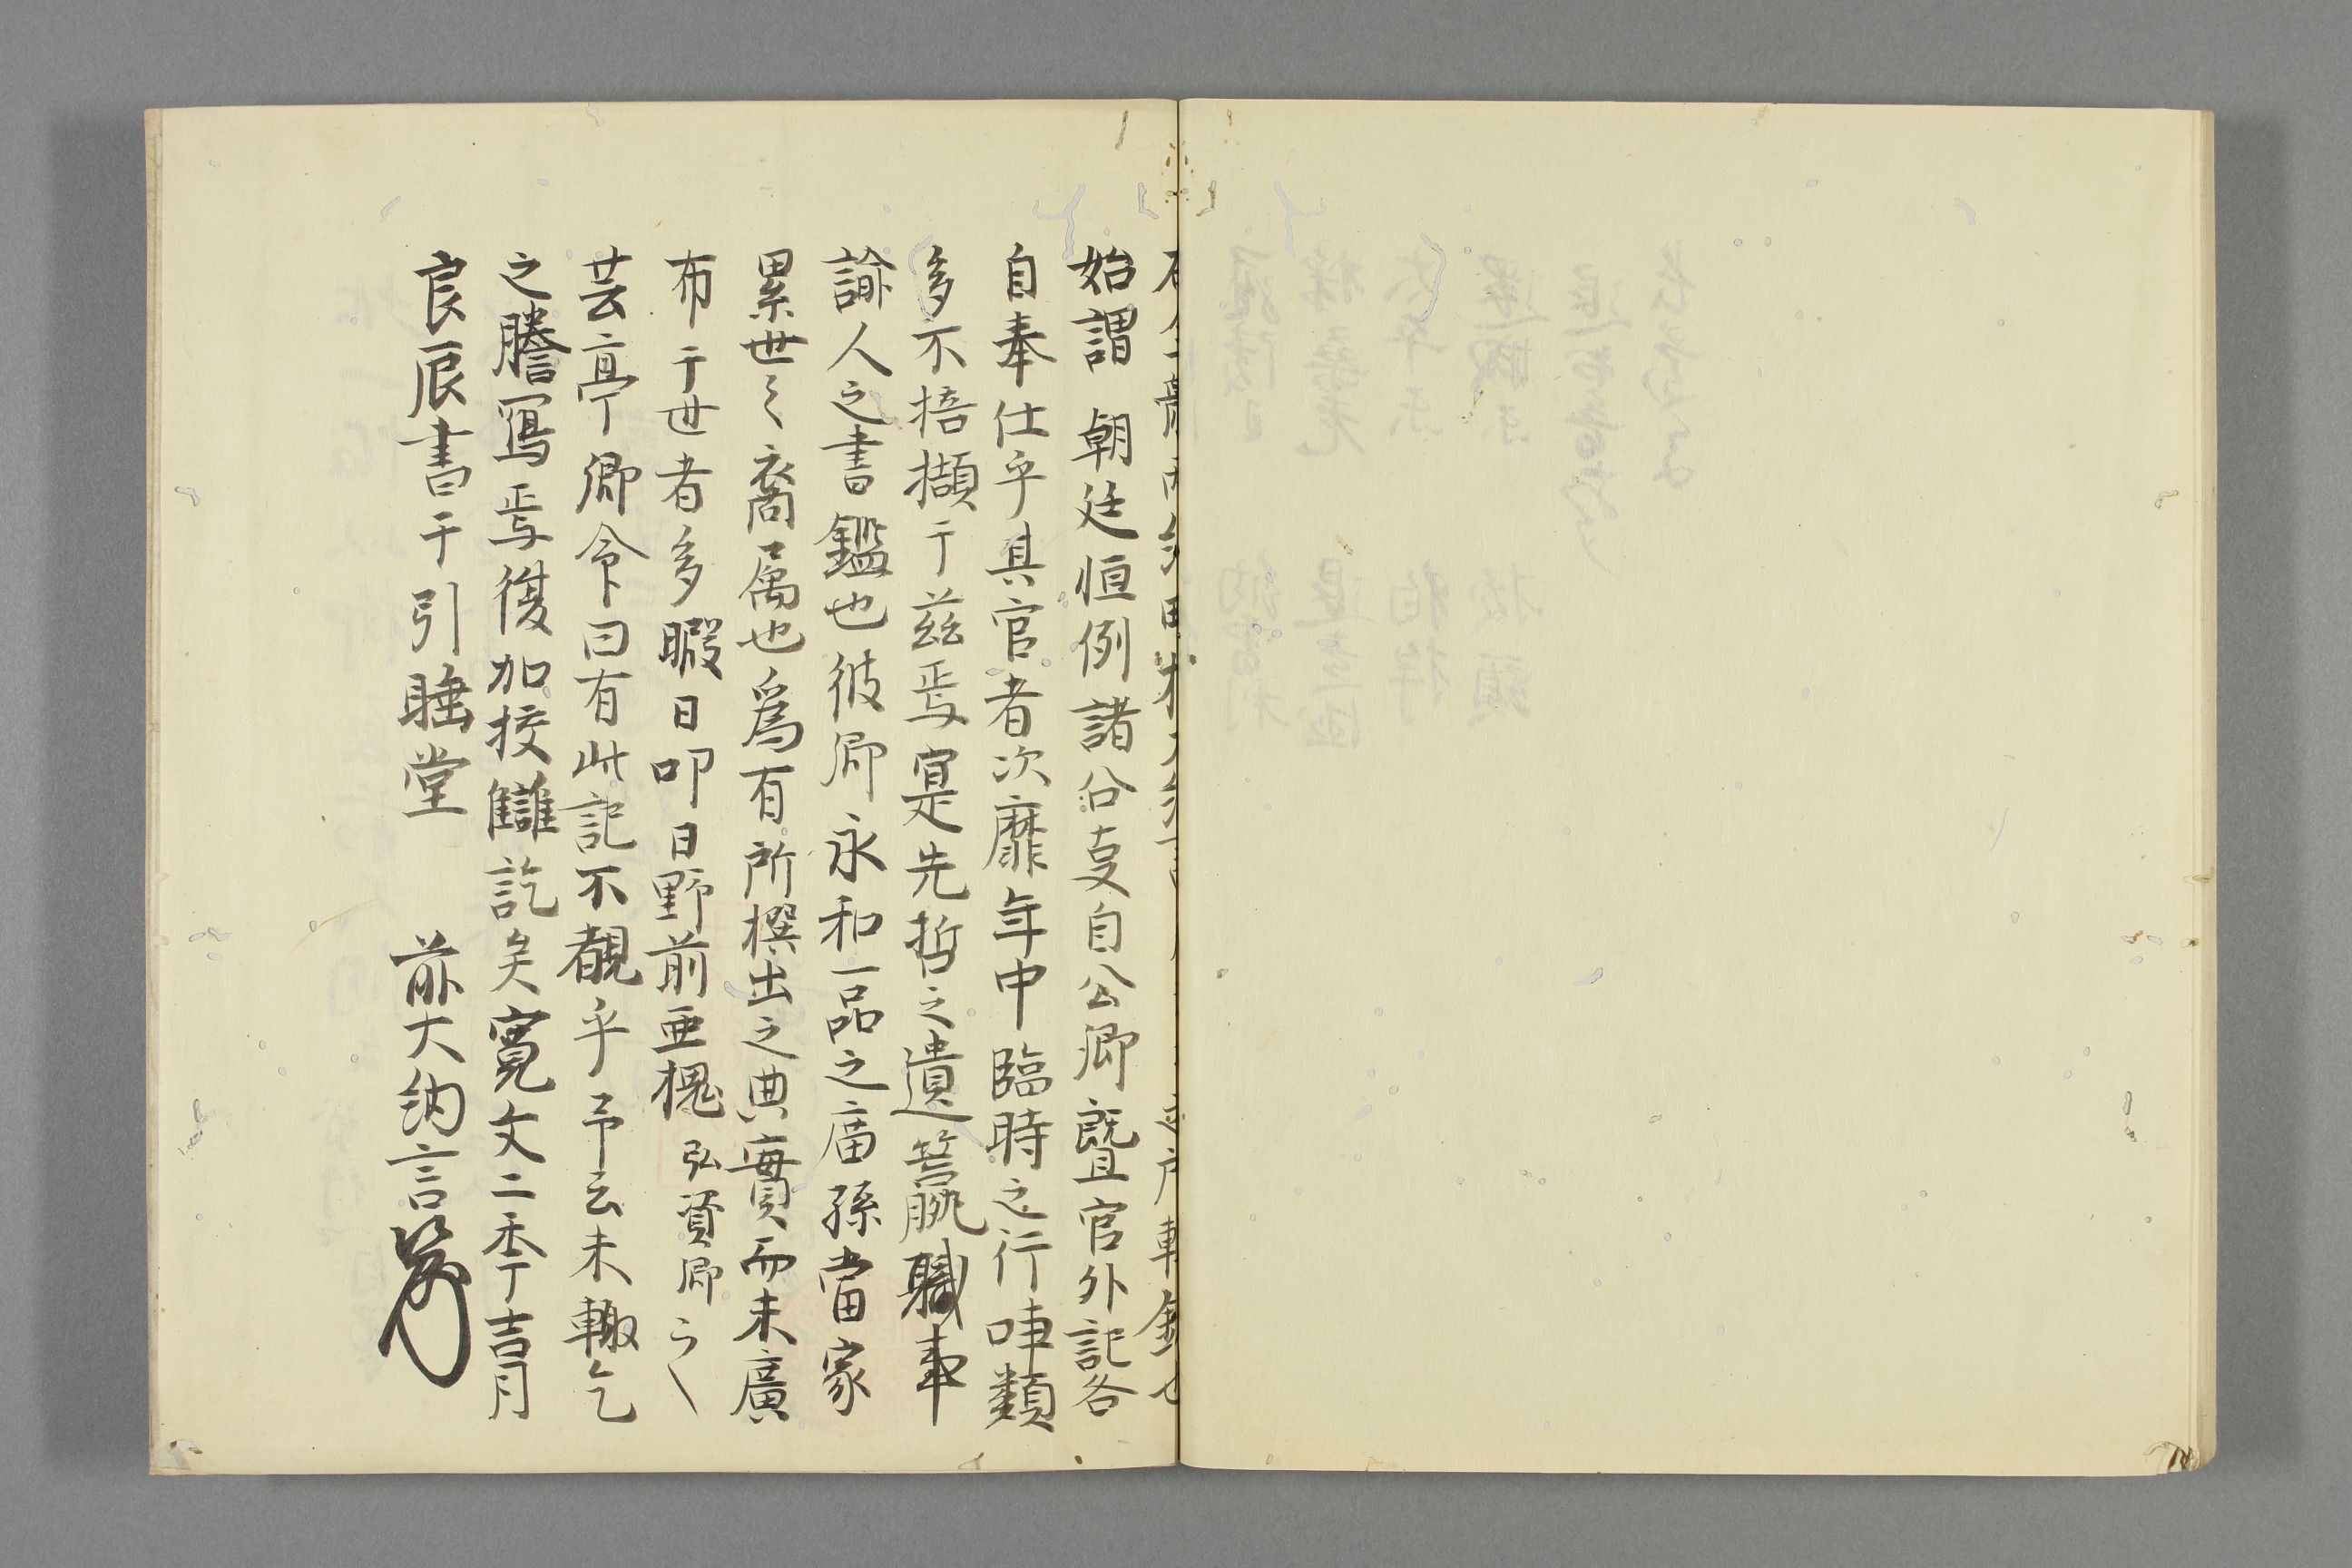 始謂 朝廷恒例諸公事自公卿曁官外記各
自奉仕乎其官者次靡年中臨時之行事類
多不捂擷于兹焉寔是先哲之遺答脁職事
諭人之書鑑也彼卿永和一品之庿孫當家
累世々裔属也爲有所撰出之典實而未廣
布于世者多暇日叩日野前亜槐弘資卿之
芸亭卿令曰有此記不覩乎予云未輙乞
之謄寫焉復加挍讎訖矣寛文二季吉月
良辰書于引睡堂 前大納言